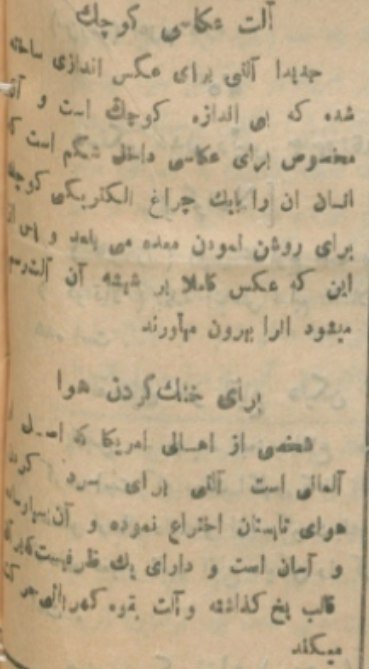 آلت عکاسی کوچك
جدیدا آلتی برای عکس اندازی ساخته
شده که بی اندازه کوچك است و آن
مخصوص برای عکاسی داخل شکم است که
انسان ان را بایك چراغ الکتریکی کوچك
برای روشن نمودن معده می بلعد و پس از
این که عکس کاملا بر شیشه آن آلت رسم
میشود انرا بیرون میآورند
برای خنك کردن هوا
شخصی از اهـالی امریکا که اصـل
آلمانی است آلتی برای سرد کردن
هوای تابستان اختراع نموده و آن بسیار ساده
و آسان است و دارای یك ظرفیست که
قالب یخ کذاشته و آلت بقوه کهربائی حرکت
میکند